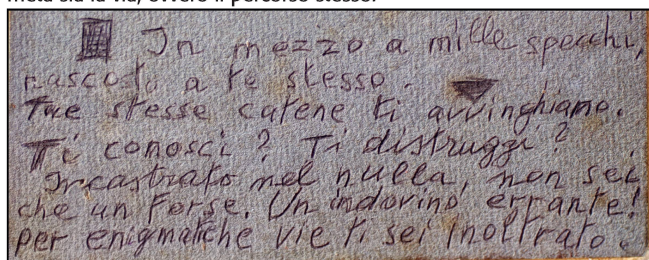 In mezzo a mille specchi,
nascosto a te stesso.
Tue stesse catene ti avvinghiano.
Ti conosci? Ti distruggi?
Incastrato nel nulla, non sei
che un forse. Un indovino errante!
per enigmatiche vie ti sei inoltrato.